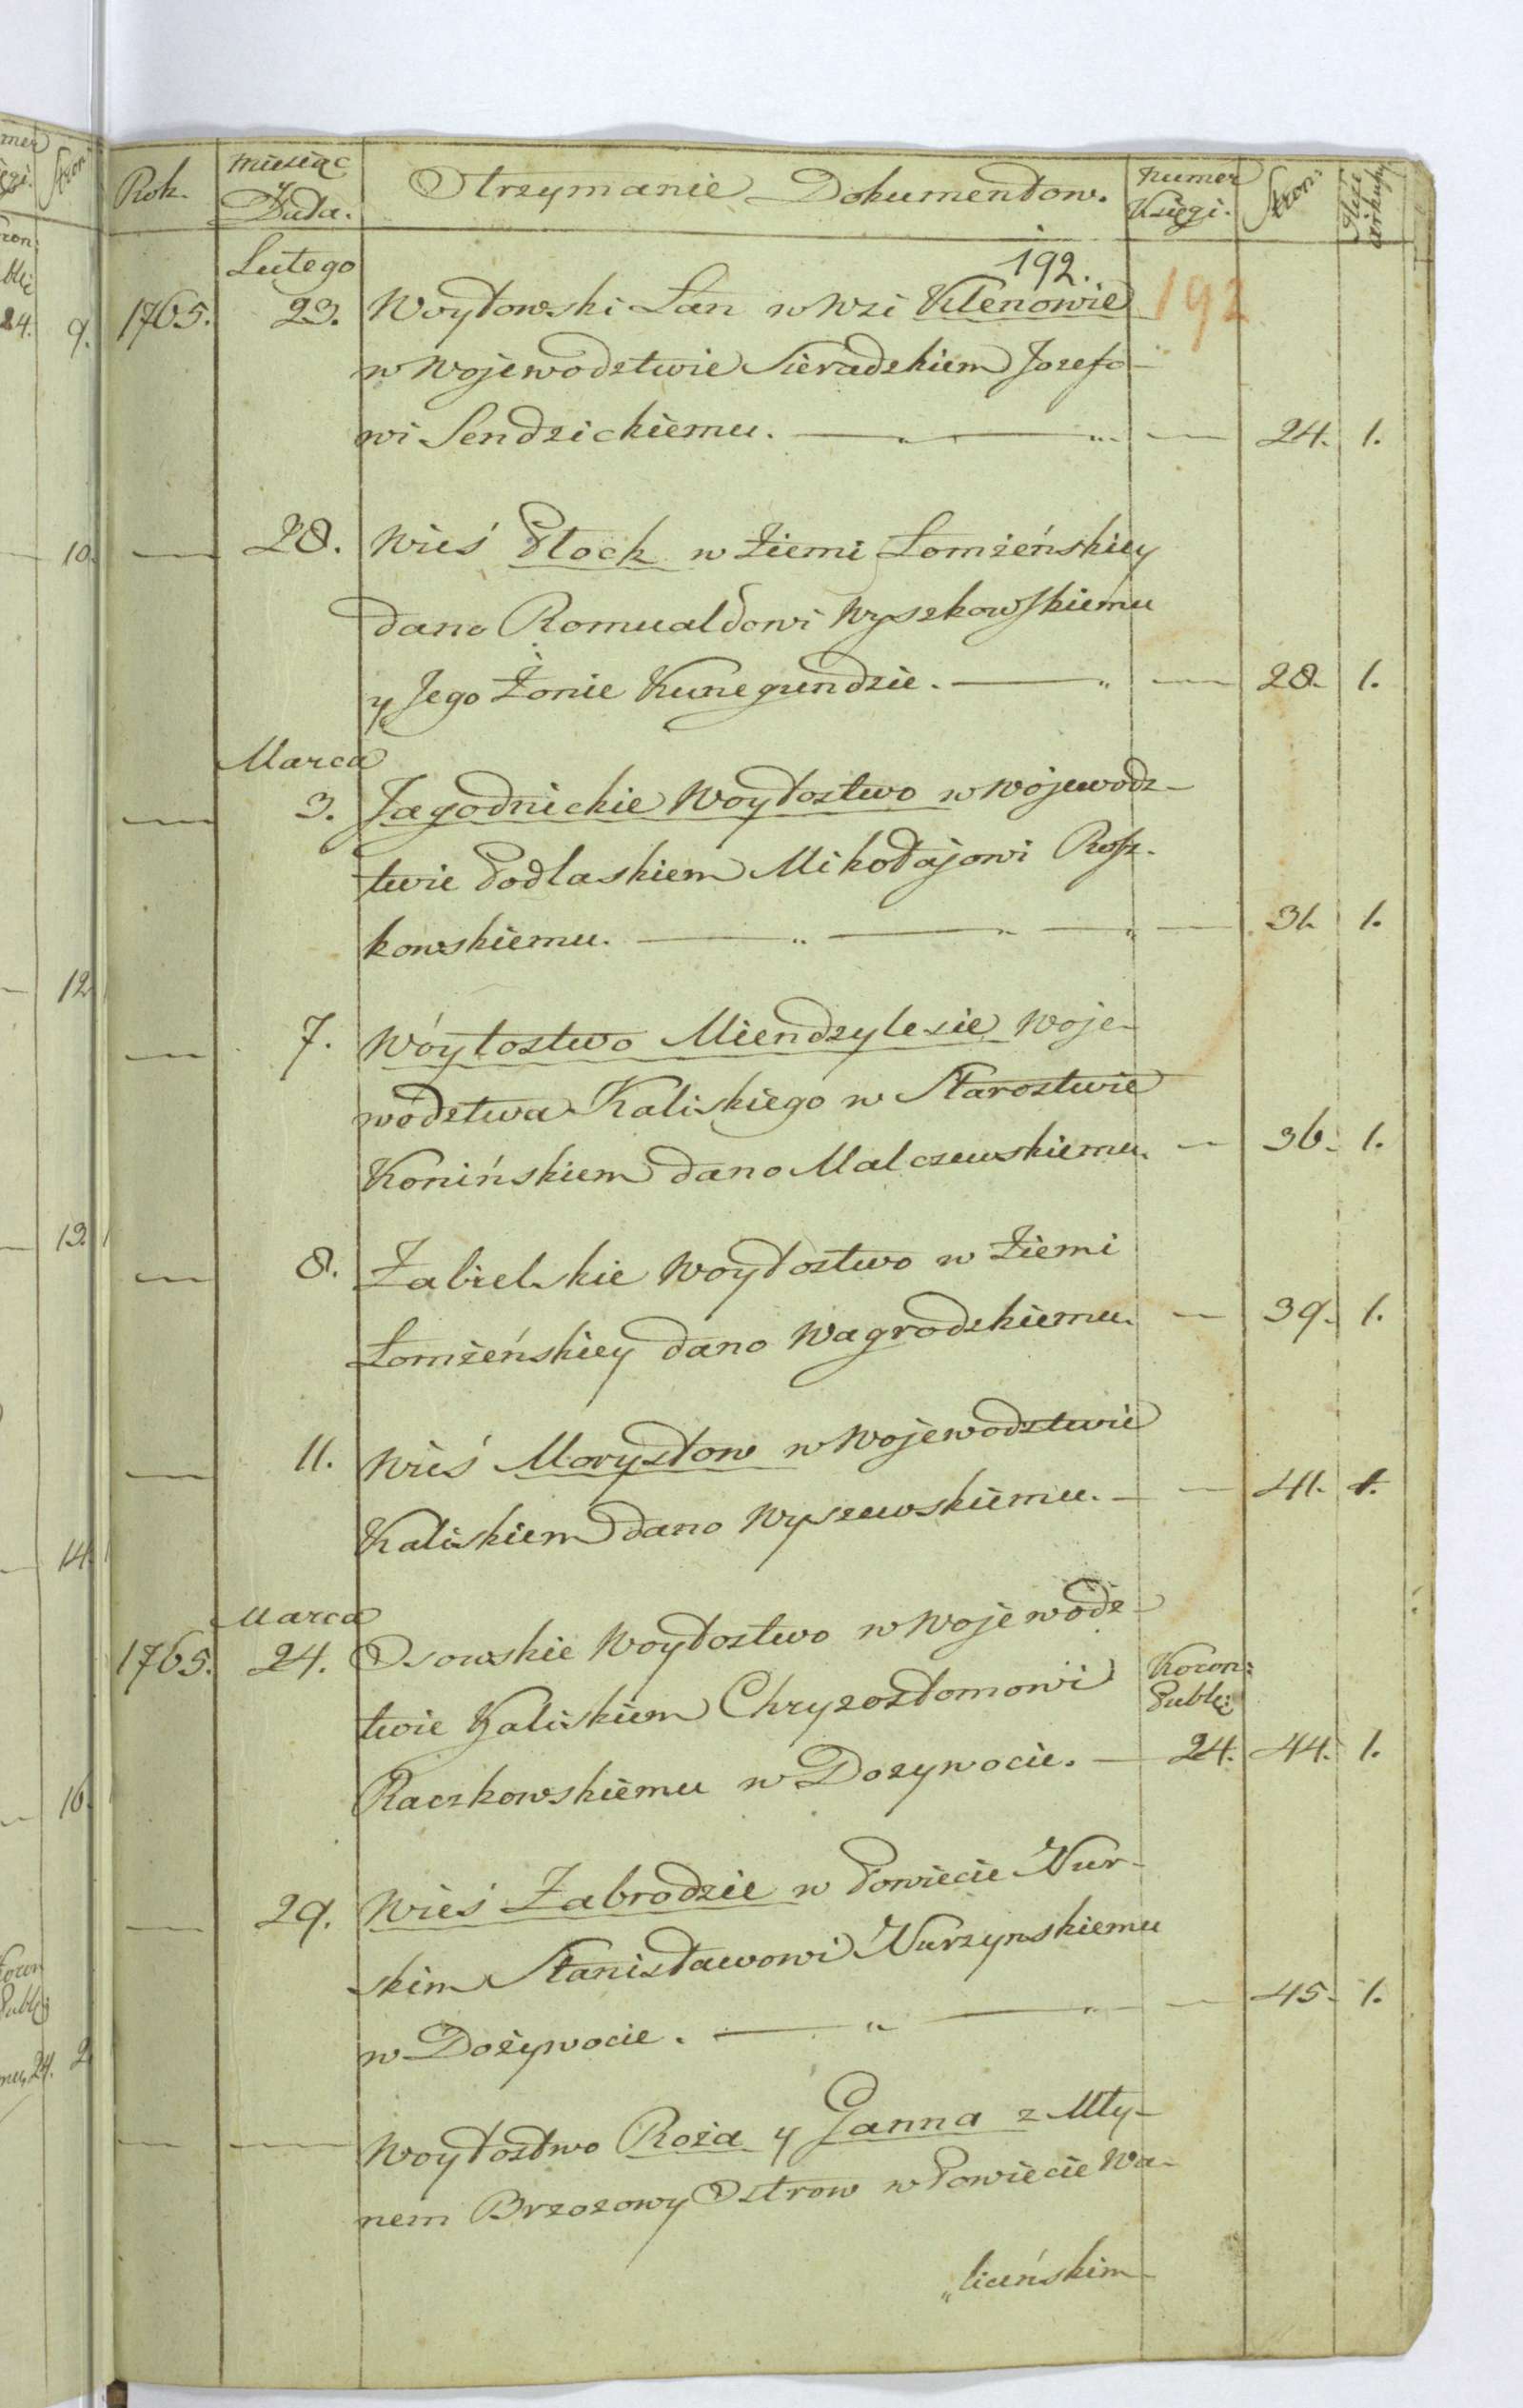 Rok.
Miesiąc
y
Data.
Otrzymanie Dokumentow.
Numer
Księgi.
Stron:
192.
192
Lutego
1765. 23. Woytowski Łan w Wsi Klenowie
w Wojewodztwie Sieradzkiem Jozefo-
wi Sendzickiemu. — 24. 1.
— 28. Wieś Płock w Ziemi Łomżeńskiey
dano Romualdowi Wyszkowskiemu
y Jego Żonie Kunegundzie. — 28. 1.
Marca
— 3. Jagodnickie Woytostwo w Wojewodz-
twie Podlaskiem Mikołajowi Rosz-
kowskiemu. — 31. 1.
— 7. Wóytostwo Miendzylesie Woje-
wodztwa Kaliskiego w Starostwie
Konińskiem dano Malczewskiemu. — 36. 1.
— 8. Zabielskie Woytostwo w Ziemi
Łomżeńskiey dano Wagrodzkiemu. — 39. 1.
— 11. Wieś Morysłow w Wojewodztwie
Kaliskiem dano Wyszewskiemu. — 41. 1.
Marca
1765. 24. Osowskie Woytostwo w Wojewodz-
twie Kaliskiem Chryzostomowi
Koron:
Publ:
Raczkowskiemu w Dozywocie. — 24. 44. 1.
— 29. Wieś Zabrodzie w Powiecie Nur-
skim Stanisławowi Nurzynskiemu
w Dożywocie. — 45. 1.
— — Woytostwo Roża y Ganna z Mły-
nem Brzozowy Ostrow w Powiecie Wa-
„lieńskim